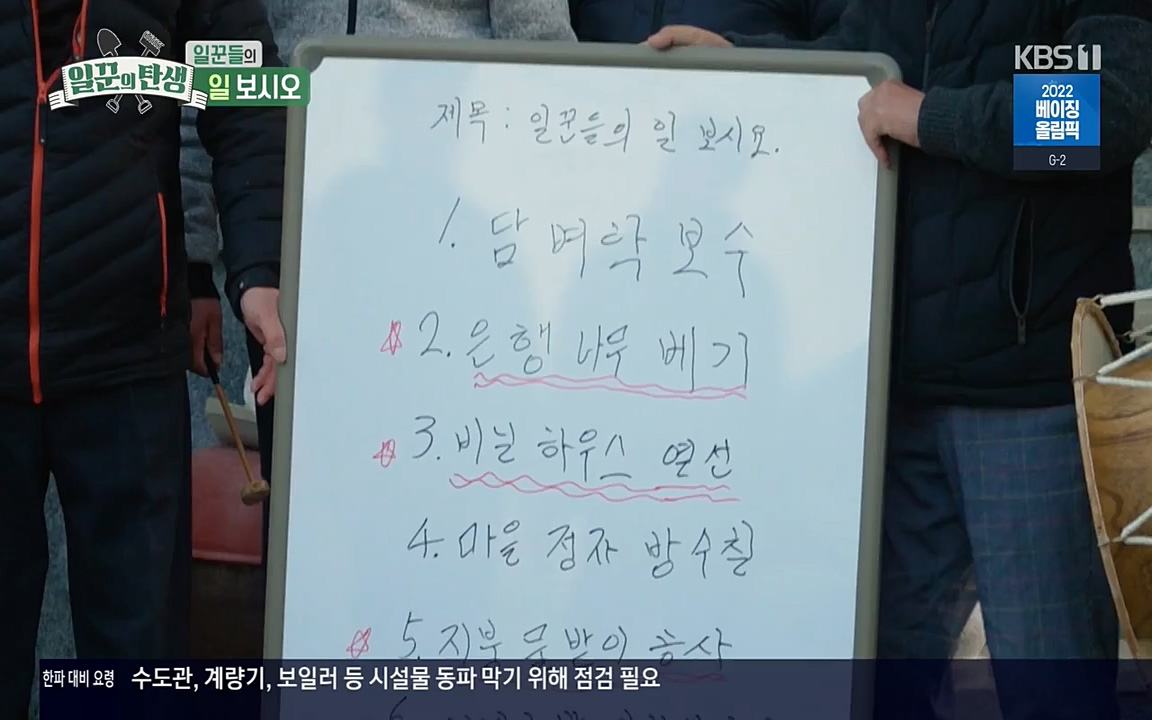 일꾼의 탄생
일꾼들의
일 보시오
KBS 1
2022
베이징
올림픽
G-2
제목 : 일꾼들의 일 보시오.
1. 담 벼락 보수
2. 은행 나무 베기
3. 비닐 하우스 연선
4. 마을 정자 방수칠
5. 지붕 물받이 공사
6.
한파 대비 요령 수도관, 계량기, 보일러 등 시설물 동파 막기 위해 점검 필요